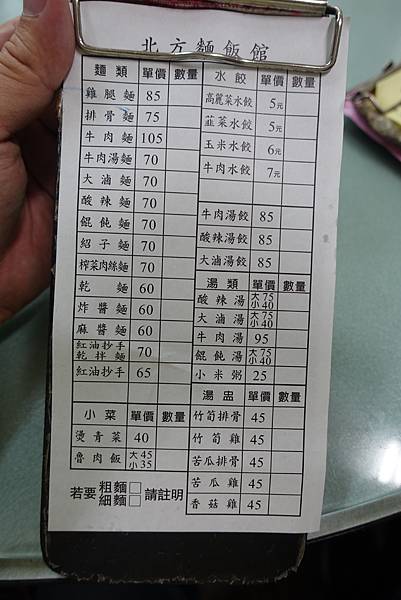 北方麵飯館
麵類 單價 數量
雞腿麵 85
排骨麵 75
牛肉麵 105
牛肉湯麵 70
大滷麵 70
酸辣麵 70
餛飩麵 70
紹子麵 70
榨菜肉絲麵 70
乾麵 60
炸醬麵 60
麻醬麵 60
紅油抄手乾拌麵 70
紅油抄手 65
小菜 單價 數量
燙青菜 40
魯肉飯 大45 小35
若要 粗麵□ 細麵□ 請註明
水餃 單價 數量
高麗菜水餃 5元
韮菜水餃 5元
玉米水餃 6元
牛肉水餃 7元
牛肉湯餃 85
酸辣湯餃 85
大滷湯餃 85
湯類 單價 數量
酸辣湯 大75 小40
大滷湯 大75 小40
牛肉湯 95
餛飩湯 大75 小40
小米粥 25
湯盅 單價 數量
竹筍排骨 45
竹筍雞 45
苦瓜排骨 45
苦瓜雞 45
香菇雞 45